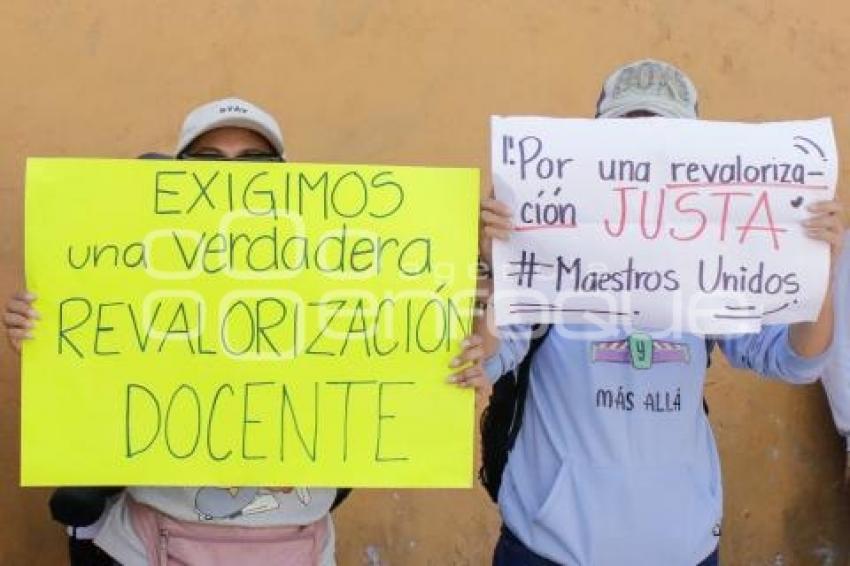 EXIGIMOS
una verdadera
REVALORIZACIÓN
DOCENTE
Por una revaloriza-
ción JUSTA
#Maestros Unidos
y
MÁS ALLÁ
agencia
enfoque